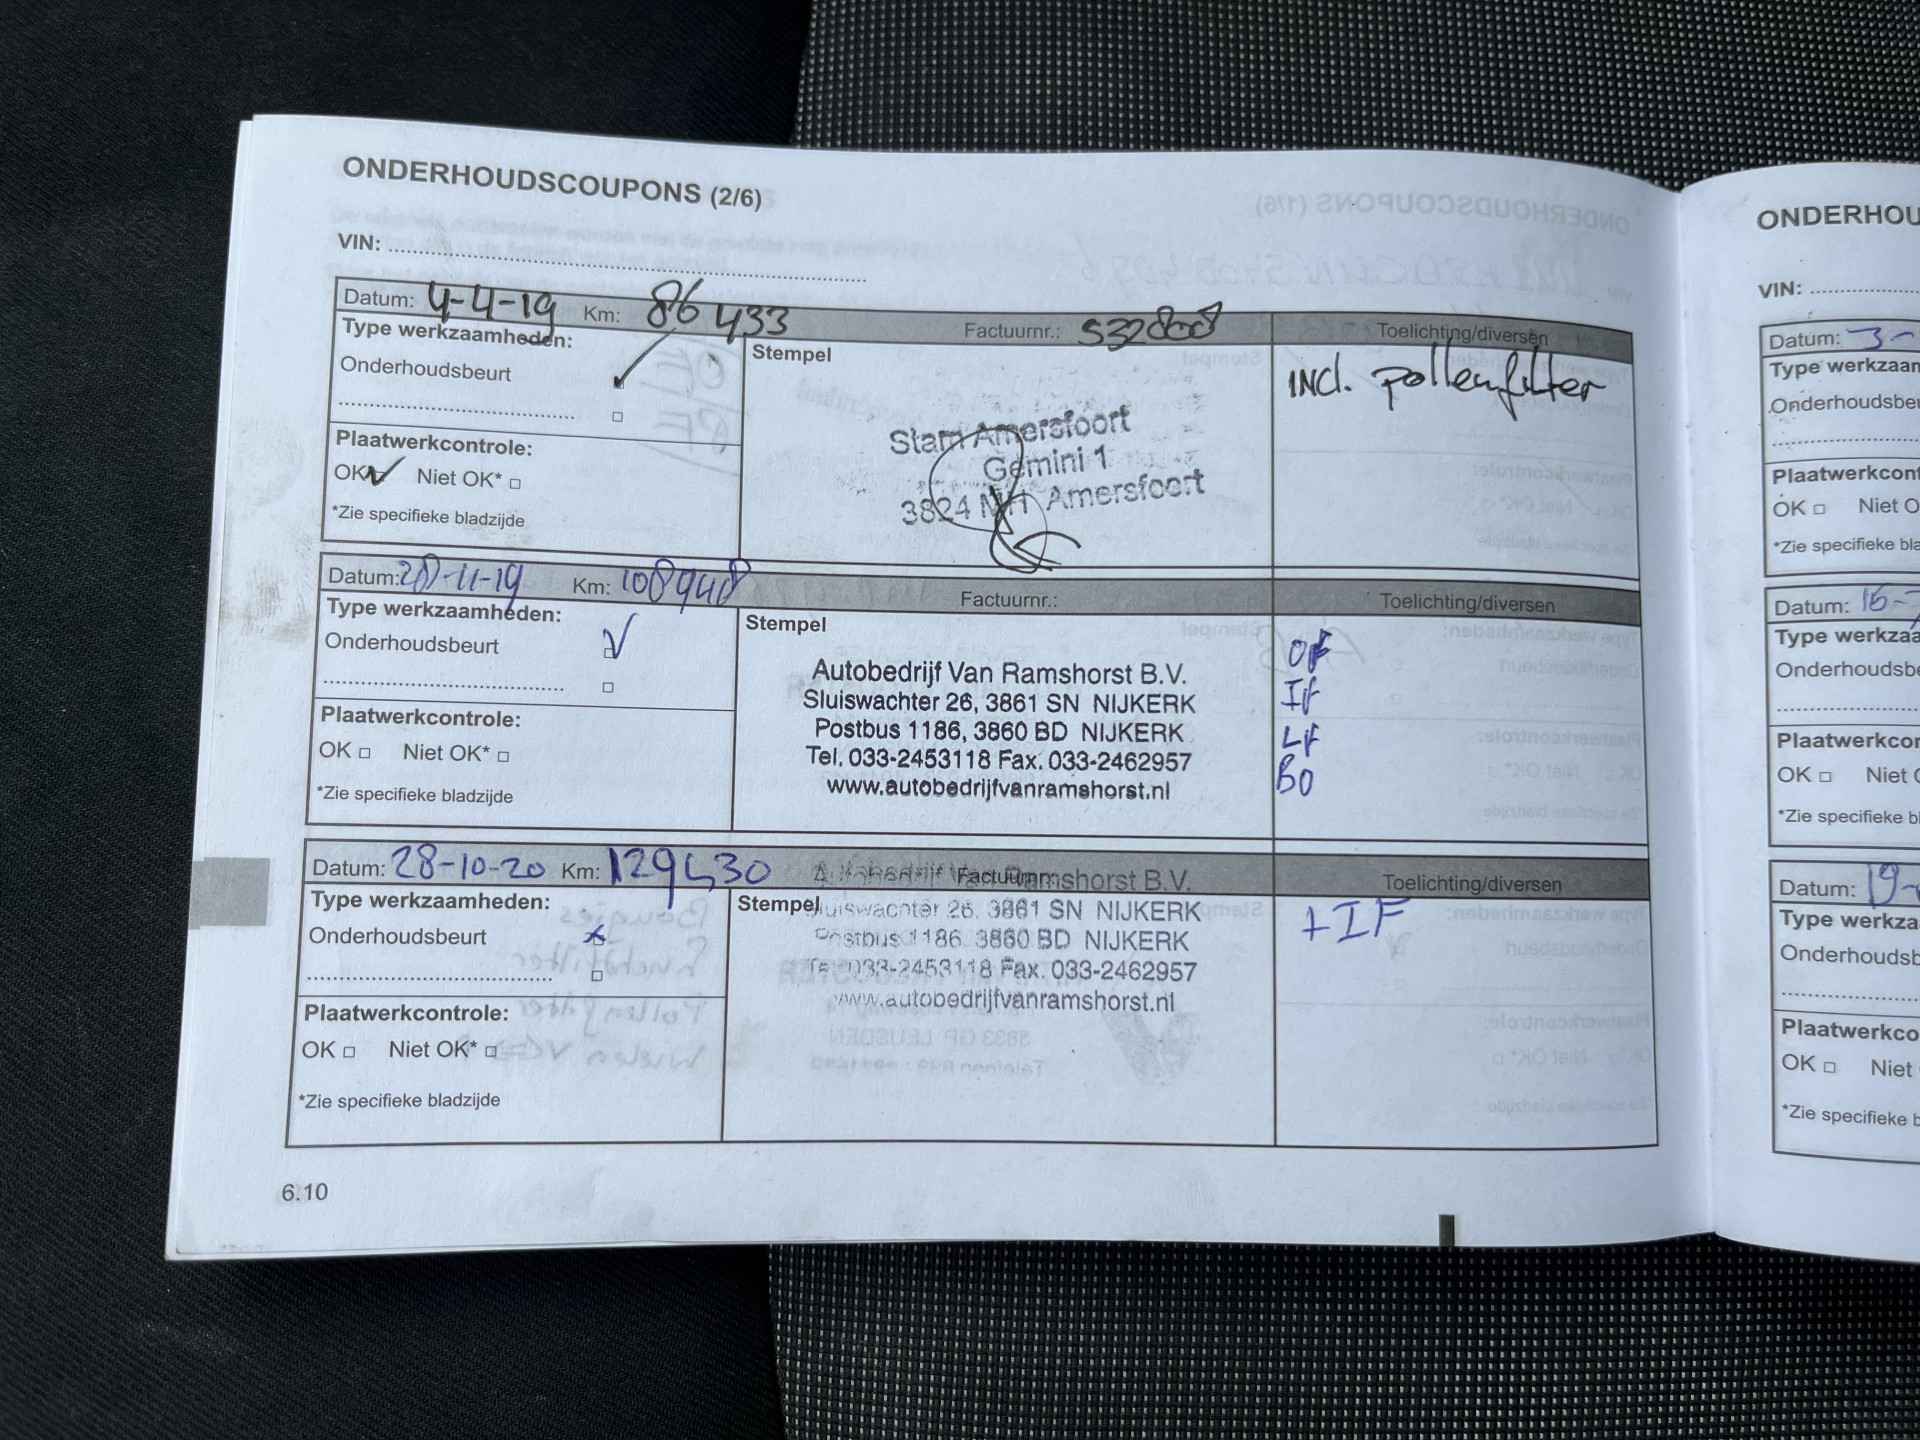 ONDERHOUDSCOUPONS (2/6)
VIN: ................
Datum: 4-4-19 Km: 86433 Factuurnr.: 532808 Toelichting/diversen
Type werkzaamheden:
Stempel
Onderhoudsbeurt
incl. pollenfilter
Plaatwerkcontrole:
OK Niet OK*
*Zie specifieke bladzijde
Stam Amersfoort
Gemini 1
3824 MH Amersfoort
Datum: 28-11-19 Km: 108948 Factuurnr.: Toelichting/diversen
Type werkzaamheden:
Stempel
Onderhoudsbeurt
Plaatwerkcontrole:
OK Niet OK*
*Zie specifieke bladzijde
Autobedrijf Van Ramshorst B.V.
Sluiswachter 26, 3861 SN NIJKERK
Postbus 1186, 3860 BD NIJKERK
Tel. 033-2453118 Fax. 033-2462957
www.autobedrijfvanramshorst.nl
OF
IF
LF
BO
Datum: 28-10-20 Km: 129530 Factuurnr.: Toelichting/diversen
Type werkzaamheden:
Stempel
Onderhoudsbeurt
Plaatwerkcontrole:
OK Niet OK*
*Zie specifieke bladzijde
Autobedrijf Van Ramshorst B.V.
Sluiswachter 26, 3861 SN NIJKERK
Postbus 1186, 3860 BD NIJKERK
Tel. 033-2453118 Fax. 033-2462957
www.autobedrijfvanramshorst.nl
+IF
6.10
ONDERHOU
VIN: ................
Datum: 3-
Type werkzaam
Onderhoudsbeu
Plaatwerkcont
OK Niet O
*Zie specifieke bla
Datum: 16-
Type werkzaa
Onderhoudsbe
Plaatwerkcor
OK Niet
*Zie specifieke bl
Datum: 19-
Type werkza
Onderhoudsb
Plaatwerkco
OK Niet
*Zie specifieke b